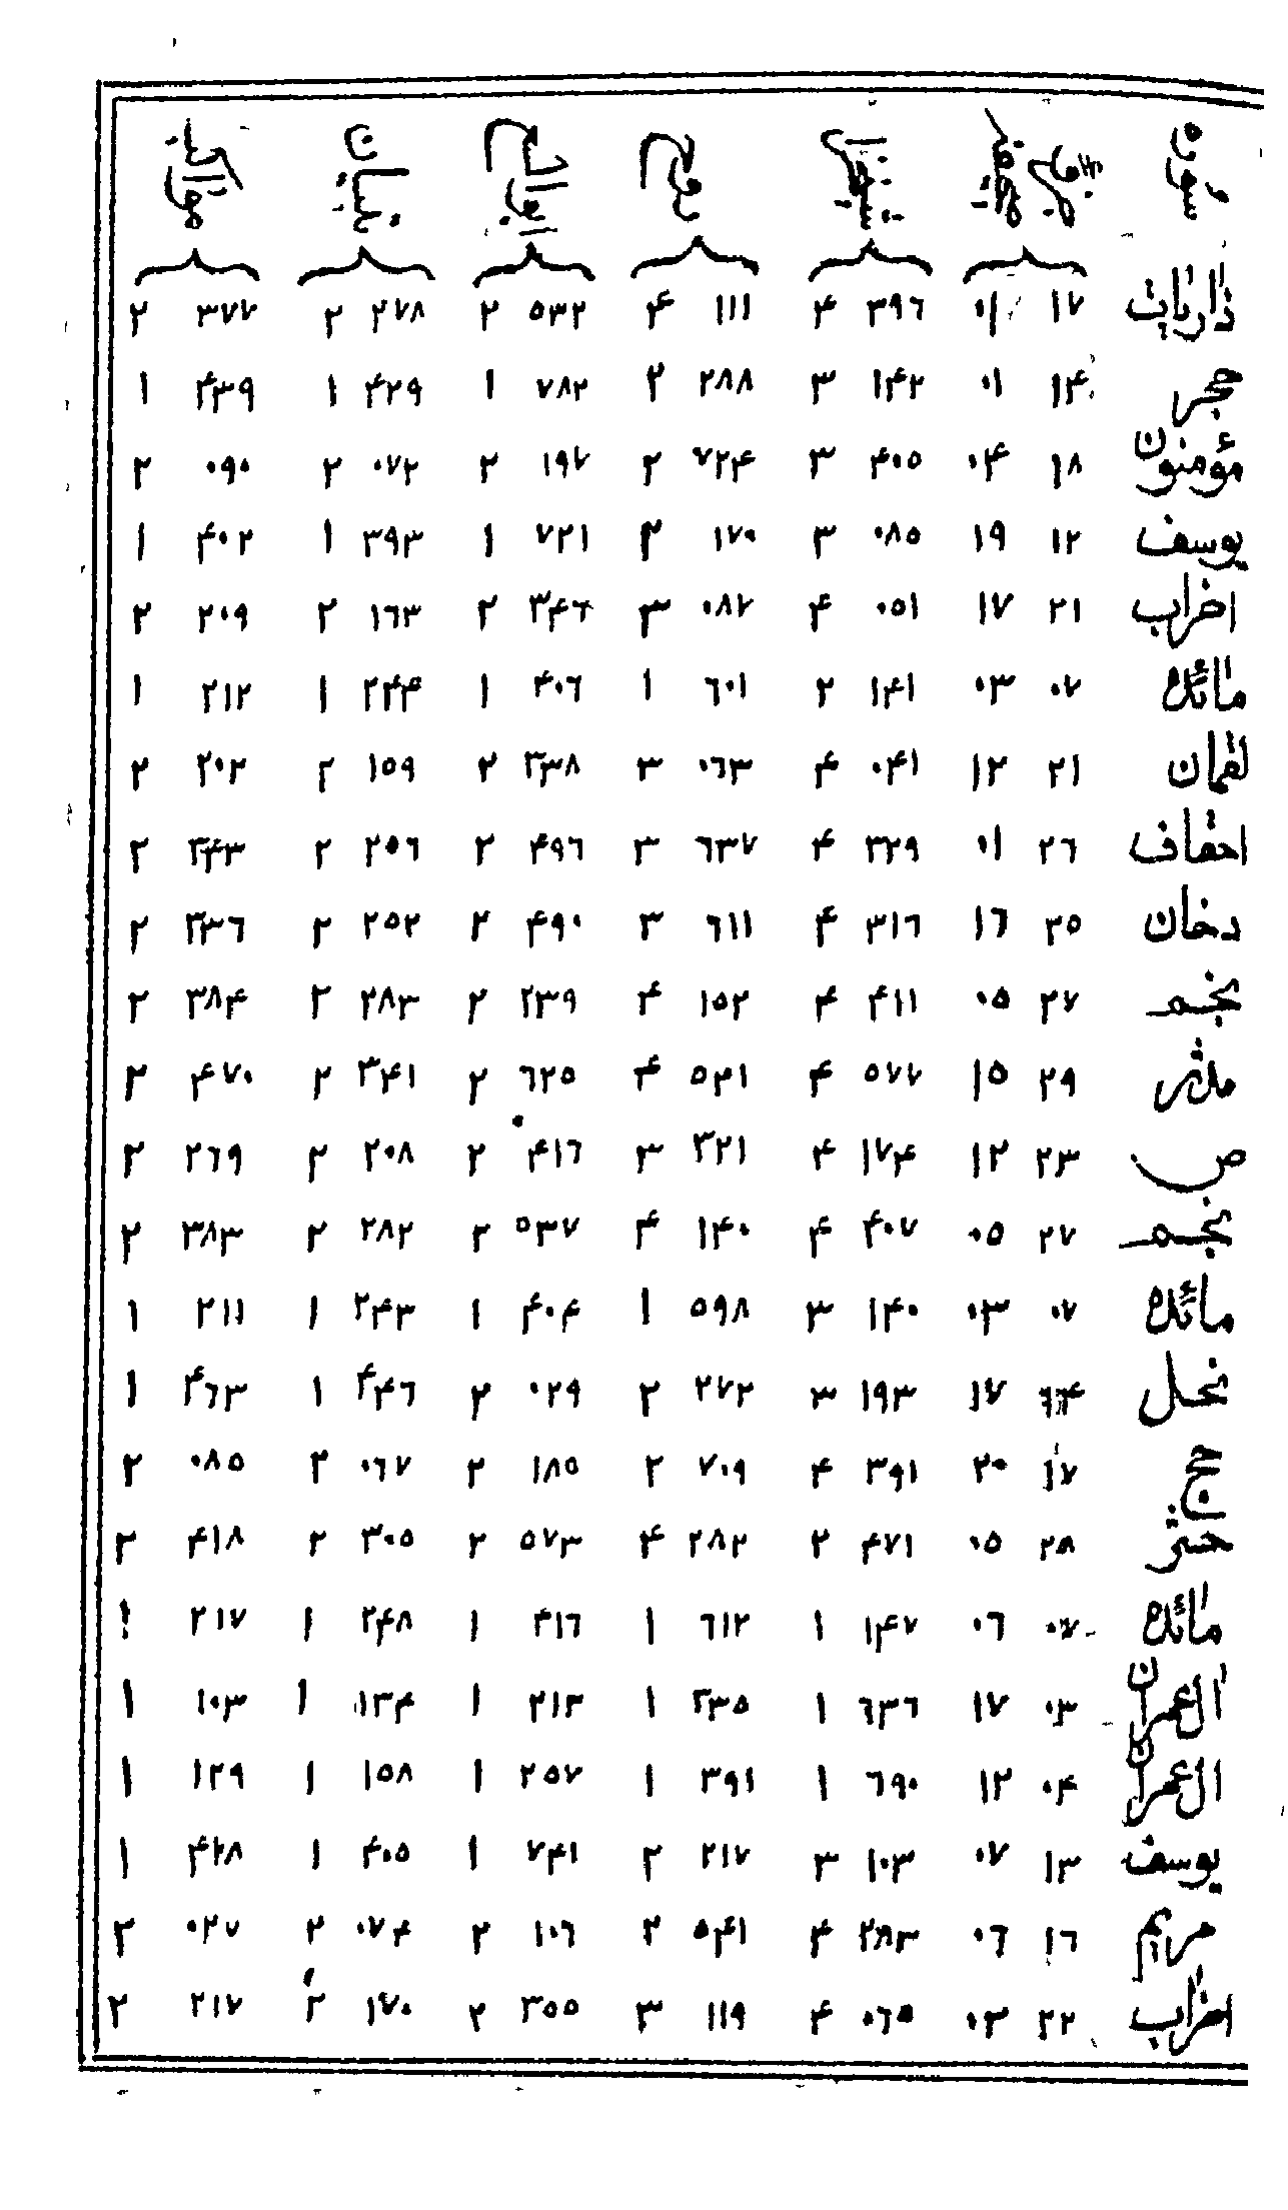 سوره
ذاریات ١٧ ٠١ ٣٩٦ ۴ ١١١ ۴ ٥٣٢ ٢ ٢٧٨ ٢ ٣٧٧ ٢
حجر ١۴ ٠١ ١۴٢ ٣ ٢٨٨ ٢ ٧٨٢ ١ ۴٢٩ ١ ۴٣٩ ١
مؤمنون ١٨ ٠۴ ۴٠٥ ٣ ٧٢۴ ٢ ١٩٧ ٢ ٠٧٢ ٢ ٠٩٠ ٢
یوسف ١٢ ١٩ ٠٨٥ ٣ ١٧٠ ٢ ٧٢١ ١ ٣٩٣ ١ ۴٠٢ ١
احزاب ٢١ ١٧ ٠٥١ ۴ ٠٨٢ ٣ ٣۴٦ ٢ ١٦٣ ٢ ٢٠٩ ٢
مائده ٠٧ ٠٣ ١۴١ ٢ ٦٠١ ١ ۴٠٦ ١ ٢۴۴ ١ ٢١٢ ١
لقمان ٢١ ١٢ ٠۴١ ۴ ٠٦٣ ٣ ٣٣٨ ٢ ١٥٩ ٢ ٢٠٢ ٢
احقاف ٢٦ ٠١ ٣٢٩ ۴ ٦٣٧ ٣ ۴٩٦ ٢ ٢٥٦ ٢ ٣۴٣ ٢
دخان ٢٥ ١٦ ٣١٦ ۴ ٦١١ ٣ ۴٩٠ ٢ ٢٥٢ ٢ ٣٣٦ ٢
نجم ٢٧ ٠٥ ۴١١ ۴ ١٥٢ ۴ ٢٣٩ ٢ ٢٨٣ ٢ ٣٨۴ ٢
مدثر ٢٩ ١٥ ٥٧٧ ۴ ٥٣١ ۴ ٦٢٥ ٢ ٣۴١ ٢ ۴٧٠ ٢
ص ٢٣ ١٢ ١٧۴ ۴ ٣٢١ ٣ ۴١٦ ٢ ٢٠٨ ٢ ٢٦٩ ٢
نجم ٢٧ ٠٥ ۴٠٧ ۴ ١۴٠ ۴ ٥٣٧ ٢ ٢٨٢ ٢ ٣٨٣ ٢
مائده ٠٧ ٠٣ ١۴٠ ٣ ٥٩٨ ١ ۴٠۴ ١ ٢۴٣ ١ ٢١١ ١
نحل ١٧ ١٩٣ ٣ ٢٧٢ ٢ ٠٢٩ ٢ ۴۴٦ ١ ۴٦٣ ١
حج ١٧ ٢٠ ٣٩١ ۴ ٧٠٩ ٢ ١٨٥ ٢ ٠٦٧ ٢ ٠٨٥ ٢
حشر ٢٨ ٠٥ ۴٧١ ٢ ٢٨٢ ۴ ٥٧٣ ٢ ٣٠٥ ٢ ۴١٨ ٢
مائده ٠٧ ٠٦ ١۴٧ ١ ٦١٢ ١ ۴١٦ ١ ٢۴٨ ١ ٢١٧ ١
ال عمران ٠٣ ١٧ ٦٣٦ ١ ٣٣٥ ١ ٢١٣ ١ ١٣۴ ١ ١٠٣ ١
ال عمران ٠۴ ١٢ ٦٩٠ ١ ٣٩١ ١ ٢٥٧ ١ ١٥٨ ١ ١٢٩ ١
یوسف ١٣ ٠٧ ١٠٣ ٣ ٢١٧ ٢ ٧۴١ ١ ۴٠٥ ١ ۴٢٨ ١
مریم ١٦ ٠٦ ٢٨٣ ۴ ٥۴١ ٢ ١٠٦ ٢ ٠٧۴ ٢ ٠٢٧ ٢
احزاب ٢٢ ٠٣ ٠٦٥ ۴ ١١٩ ٣ ٣٥٥ ٢ ١٧٠ ٢ ٢١٧ ٢